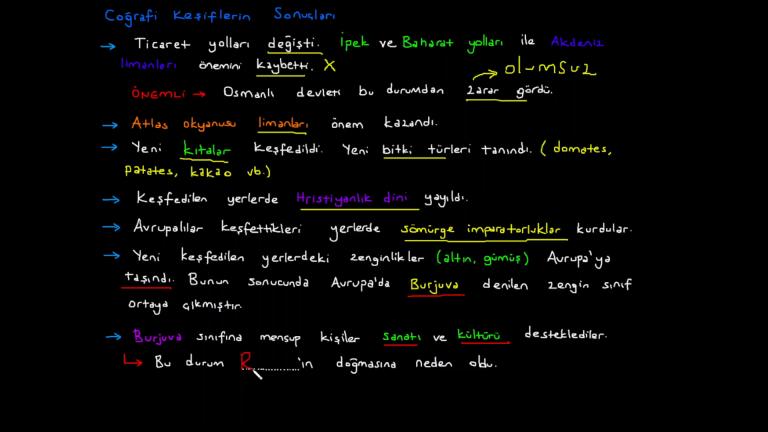 Coğrafi Keşiflerin Sonuçları
→ Ticaret yolları değişti. İpek ve Baharat yolları ile Akdeniz
limanları önemini kaybetti. X
→ olumsuz
ÖNEMLİ → Osmanlı devleti bu durumdan zarar gördü.
→ Atlas okyanusu limanları önem kazandı.
→ Yeni kıtalar keşfedildi. Yeni bitki türleri tanındı. (domates,
patates, kakao vb.)
→ Keşfedilen yerlerde Hristiyanlık dini yayıldı.
→ Avrupalılar keşfettikleri yerlerde sömürge imparatorluklar kurdular.
→ Yeni keşfedilen yerlerdeki zenginlikler (altın, gümüş) Avrupa'ya
taşındı. Bunun sonucunda Avrupa'da Burjuva denilen zengin sınıf
ortaya çıkmıştır.
→ Burjuva sınıfına mensup kişiler sanatı ve kültürü desteklediler.
↳ Bu durum R..............'ın doğmasına neden oldu.